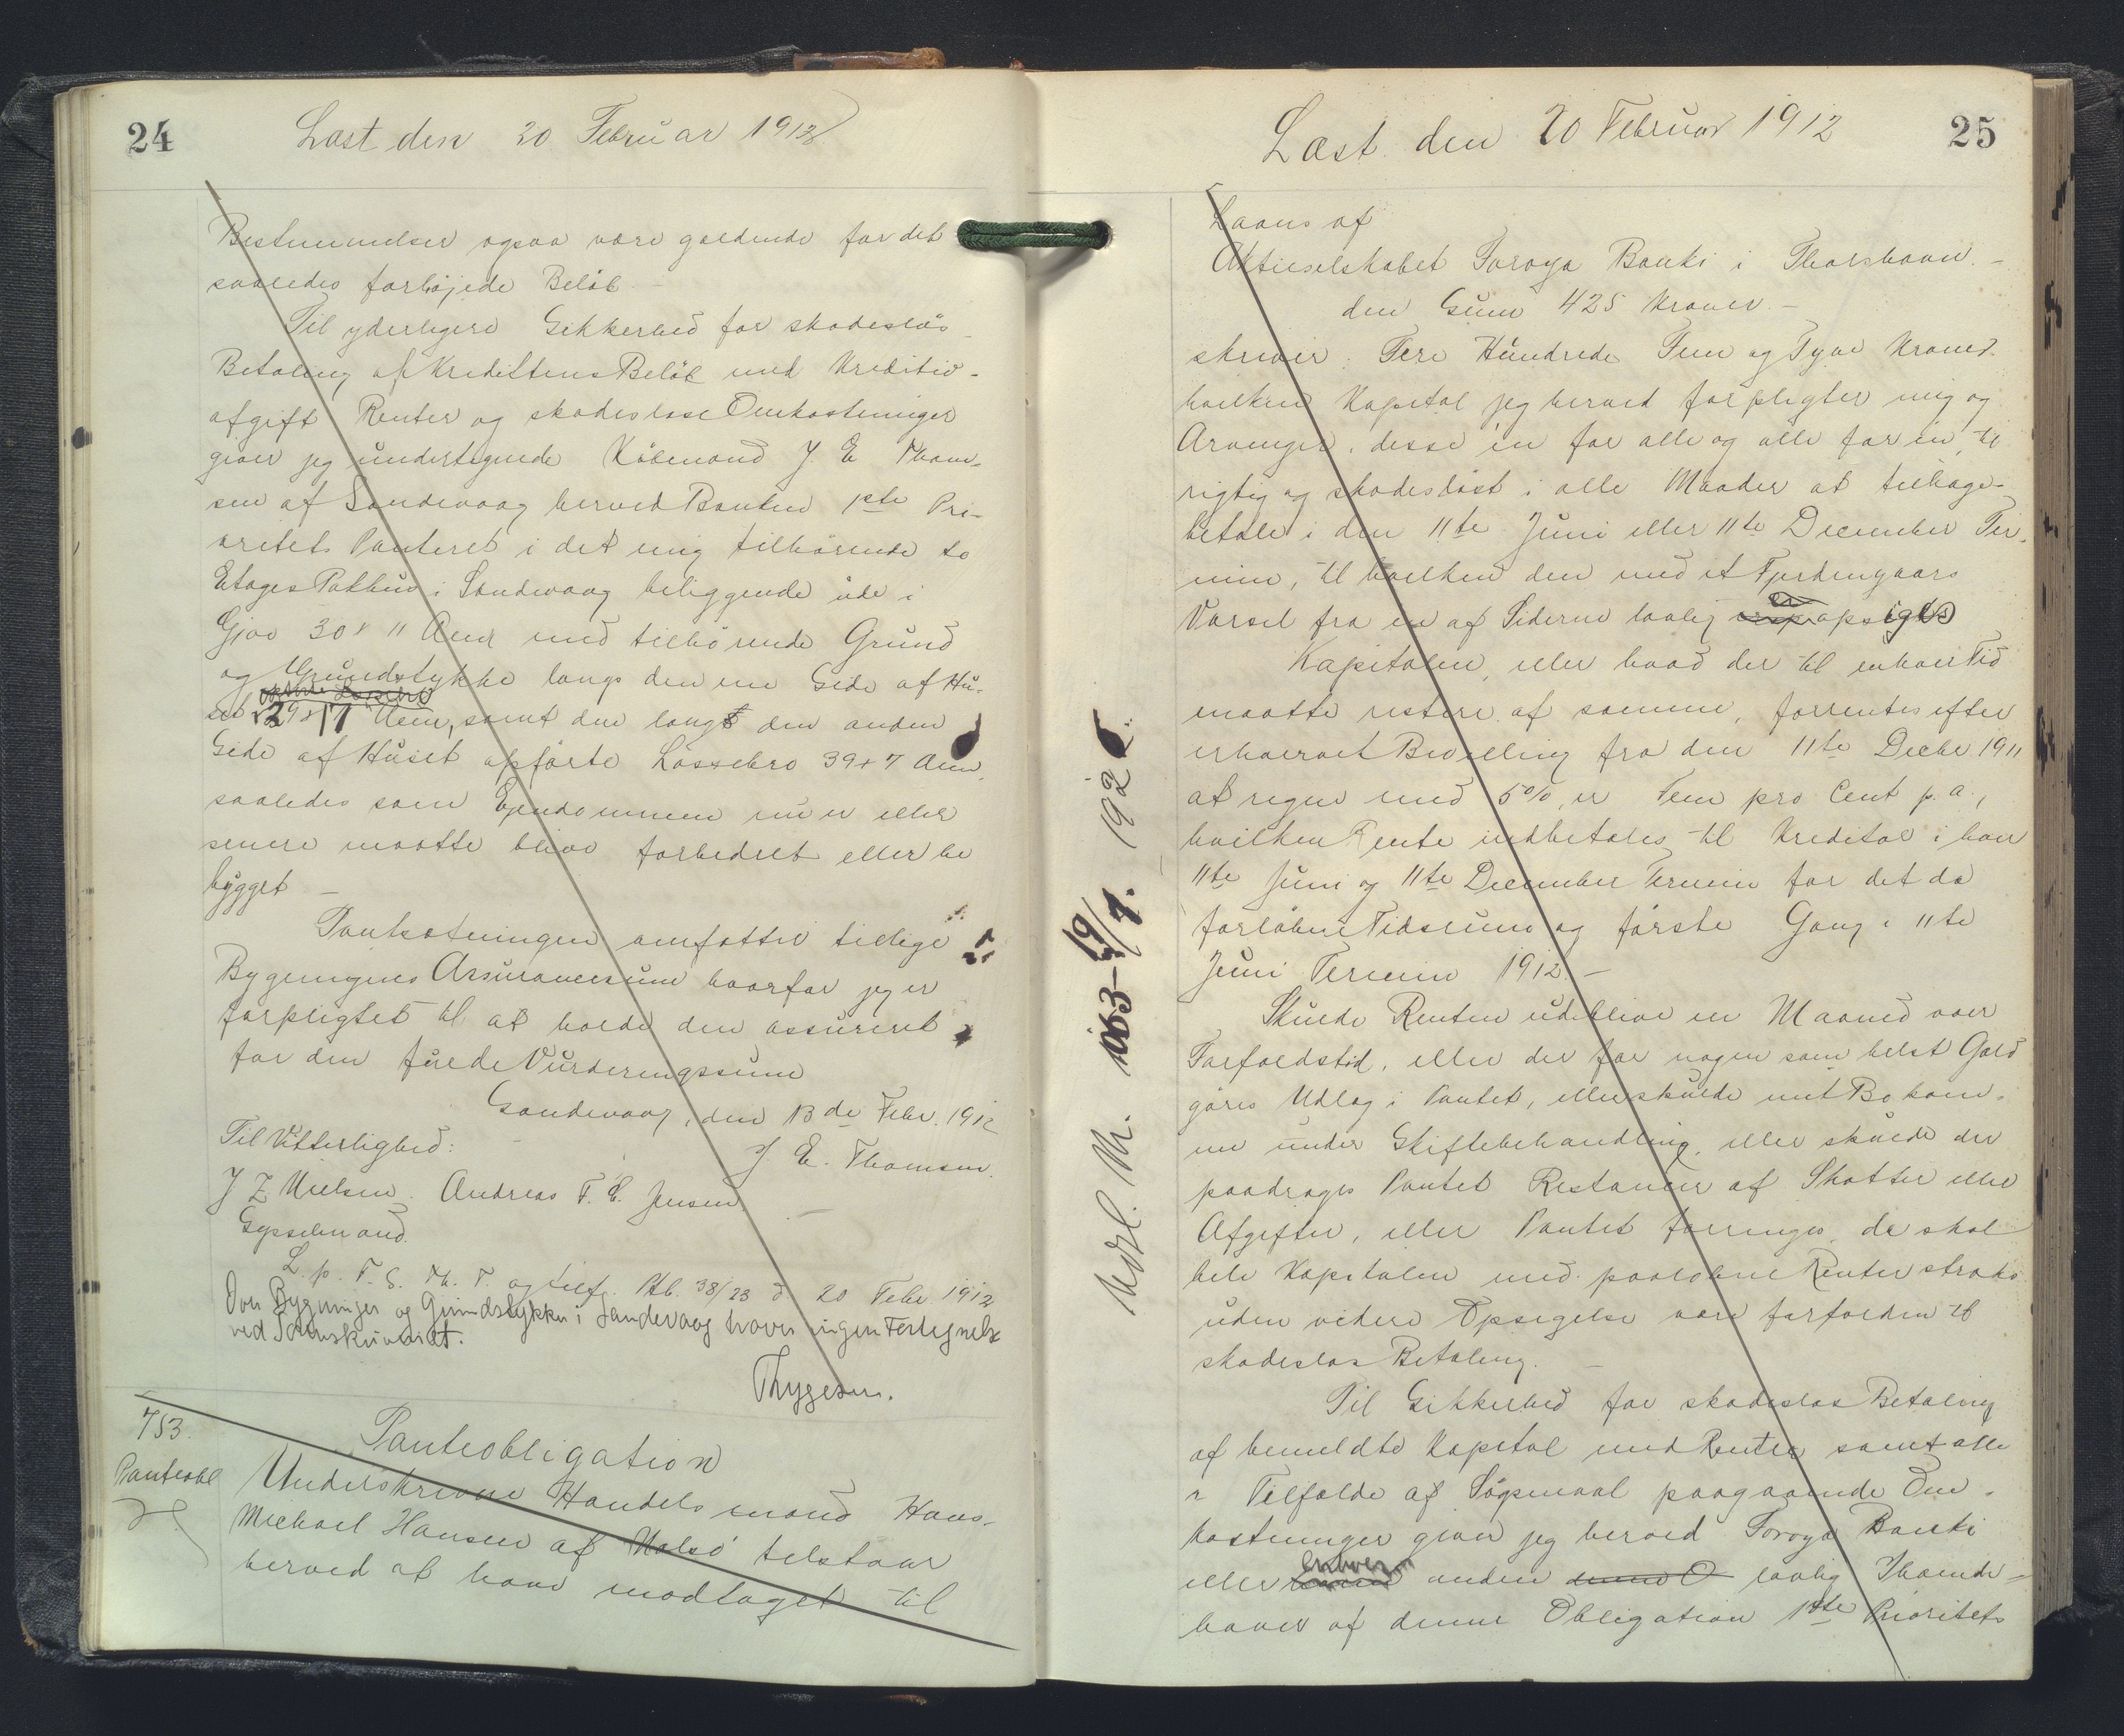 24
Læst den 20 Februar 1912
Bestemmelser ogsaa være gældende for det
saaledes forhøjede Beløb. –
Til yderligere Sikkerhed for skadesløs
Betaling af Kredittens Beløb med Kreditiv-
afgift Renter og skadesløse Omkostninger
giver jeg undertegnede Købmand J. E Thom-
sen af Sandevaag herved Banken 1ste Pri-
oritets Panteret i det mig tilhørende to
Etages Pakhus i Sandevaag beliggende ude i
Gjov 30 x 11 Alen med tilhørende Grund
og Grundstykke langs den ene Side af Hu-
set 29 x 17 Alen, samt den langs den anden
Side af Huset opførte Lossebro 39 x 7 Alen,
saaledes som Ejendommen nu er eller
senere maatte blive forbedret eller be
bygget –
Pantsætningen omfatter tillige
Bygningens Assurancesum hvorfor jeg er
forpligtet til at holde den assureret
for den fulde Vurderingssum
Sandevaag, den 13de Febr. 1912
Til Vitterlighed:
J E. Thomsen.
J Z Nielsen. Andreas F. E. Jensen.
Sysselmand.
L. p. F. S. Th. T. og tilf. Ptb. 38/23 d. 20 Febr. 1912
Over Bygninger og Grundstykker i Sandevaag haves ingen Fortegnelse
ved Sorenskriveriet.
Thygesen.
753.
Panteobl
Panteobligation
Underskrevne Handelsmand Hans-
Michael Hansen af Nolsø tilstaar
herved at have modtaget til
25
Læst den 20 Februar 1912
Laans af
Aktieselskabet Føroya Banki i Thorshavn. –
den Sum 425 Kroner –
skriver: Fire Hundrede Fem og Tyve Kroner.
hvilken Kapital jeg herved forpligter mig og
Arvinger, disse én for alle og alle for én, til
rigtig og skadesløst i alle Maader at tilbage-
betale i den 11te Juni eller 11te December Ter-
min, til hvilken den med et Fjerdingaars
Varsel fra en af Siderne lovlig er opsigts
Kapitalen, eller hvad der til enhver Tid
maatte restere af samme, forrentes efter
erhvervet Bevilling fra den 11te Decbr 1911
at regne med 5%, er Fem pro Cent p. a.,
hvilken Rente indbetales til Kreditor i hver
11te Juni og 11te December Termin for det da
forløbne Tidsrum og første Gang i 11te
Juni Termin 1912. –
Skulde Renten udeblive en Maaned over
Forfaldstid, eller der for nogen som helst Gæld
gøres Udlæg i Pantet, eller skulde mit Bo kom-
me under Skiftebehandling, eller skulde der
paadrages Pantet Restancer af Skatter eller
Afgifter, eller Pantet forringes, da skal
hele Kapitalen med paaløbne Renter straks
uden videre Opsigelse være forfalden til
skadesløs Betaling. –
Til Sikkerhed for skadesløs Betaling
af bemeldte Kapital med Renter samt alle
i Tilfælde af Søgsmaal paagaaende Om-
kostninger giver jeg herved Føroya Banki
eller enhver anden lovlig Ihænde-
haver af denne Obligation 1ste Prioritets